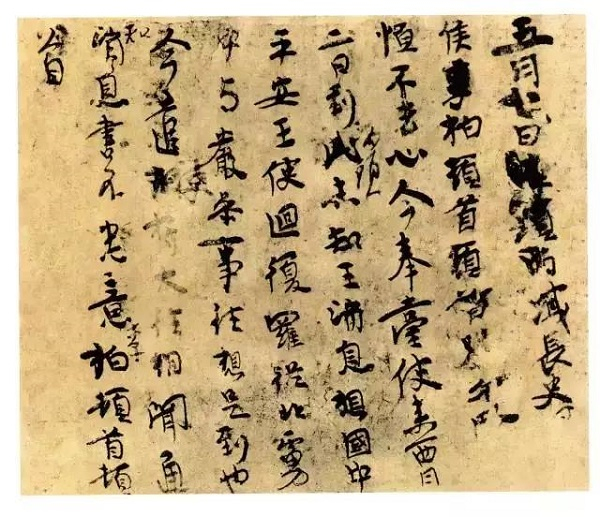 五月七日海頭西域長史
侯李柏頓首頓首別
恒不去心今奉臺使來西月
二日到此海頭未知王消息想國中
平安王使迴復羅從北虜
中与嚴參事往想是到也
今遣使符大往相聞通
知消息書不悉意李柏頓首頓
首